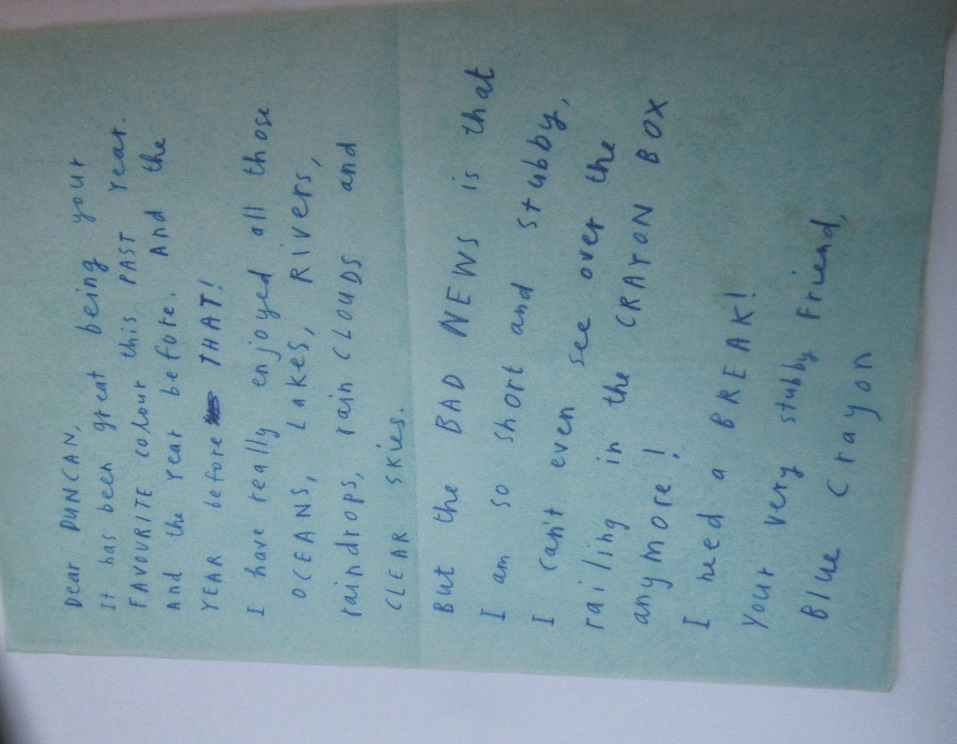 Dear DUNCAN,
It has been great being your
FAVOURITE colour this PAST Year.
And the Year before. And the
YEAR before THAT!
I have really enjoyed all those
OCEANS, LAKES, RIVERS,
raindrops, rain CLOUDS and
CLEAR skies.
But the BAD NEWS is that
I am so short and stubby,
I can't even see over the
railing in the CRAYON BOX
anymore!
I need a BREAK!
Your very stubby Friend,
Blue Crayon